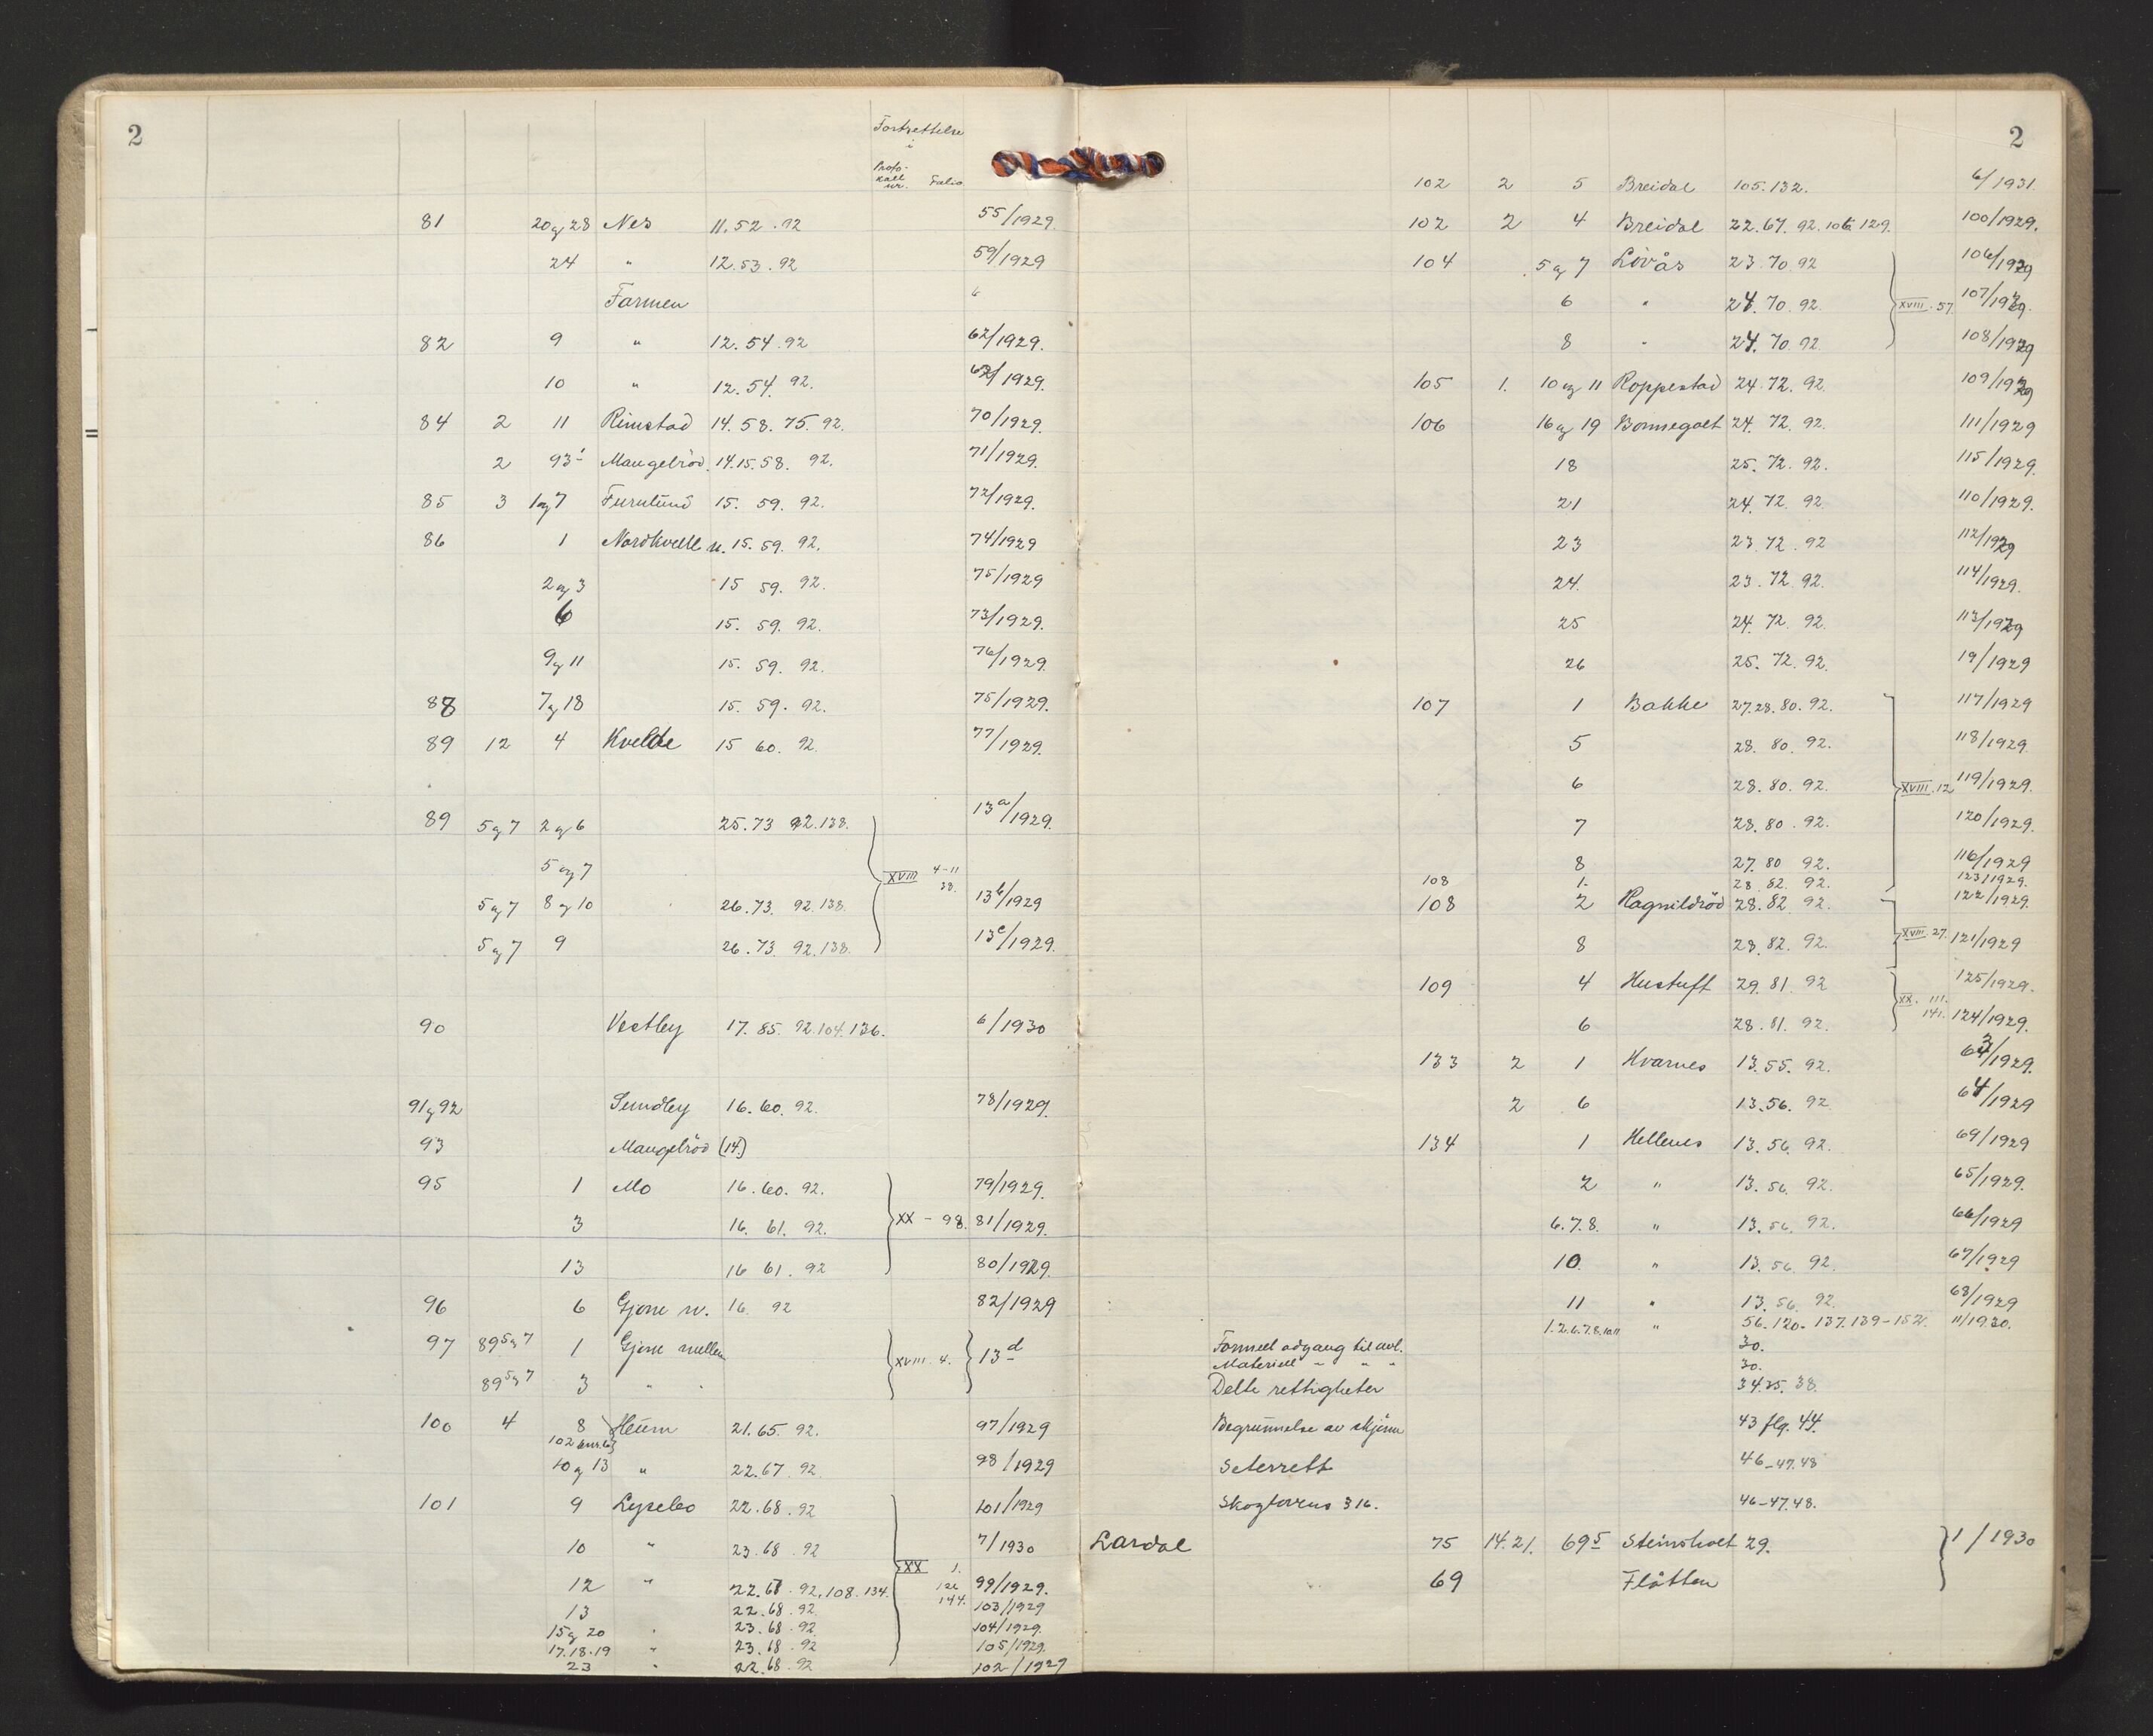 2
Fortsettelse
i
Proto-
koll
nr. Folio
81 20 og 28 Nes 11. 52. 92 55/1929.
24 " 12. 53. 92 59/1929
Farmen
82 9 " 12. 54. 92 62/1929.
10 " 12. 54. 92. /1929.
84 2 11 Rimstad 14. 58. 75. 92. 70/1929.
2 93 Maugelröd. 14. 15. 58. 92. 71/1929.
85 3 1 og 7 Furulund 15. 59. 92. 72/1929.
86 1 Nordkvelle n. 15. 59. 92. 74/1929
2 og 3 15 59. 92. 75/1929
6 15. 59. 92. 73/1929.
9 og 11 15. 59. 92. 76/1929.
88 7 og 18 15. 59. 92. 75/1929.
89 12 4 Kvelde 15 60. 92. 77/1929.
89 5 og 7 2 og 6 25. 73 92. 138. 13a/1929.
5 og 7
XVIII 4-11
38.
5 og 7 8 og 10 26. 73. 92. 138. 13b/1929
5 og 7 9 26. 73. 92. 138. 13c/1929.
90 Vestby 17. 85. 92. 104. 136. 6/1930
91 og 92 Sundby 16. 60. 92. 78/1929.
93 Maugelröd (14.)
95 1 Mo 16. 60. 92. 79/1929.
3 16. 61. 92. XX - 98. 81/1929.
13 16 61. 92 80/1929.
96 6 Gjone n. 16. 92 82/1929
97 89 5 og 7 1 Gjone mellem XVIII. 4. 13d
89 5 og 7 3 " "
100 4 8 Heum 21. 65. 92. 97/1929
102 bnr. 63
10 og 13 " 22. 67. 92. 98/1929
101 9 Lysebo 22. 68. 92 101/1929
10 " 23. 68. 92 7/1930
XX 1.
12 " 22. 68. 92. 108. 134. 144. 99/1929.
13 22. 68. 92 103/1929
15 og 20 " 23. 68. 92. 104/1929.
17. 18. 19 " 23. 68. 92 105/1929.
23 " 22. 68. 92 102/1929
2
102 2 5 Breidal 105. 132. 6/1931.
102 2 4 Breidal 22. 67. 92. 106. 129. 100/1929.
104 5 og 7 Lövås 23. 70. 92 106/1929
6 " 24. 70. 92. XVIII. 57. 107/1929.
8 " 24. 70. 92. 108/1929
105 1. 10 og 11 Roppestad 24. 72. 92. 109/1929
106 16 og 19 Bonnegolt 24. 72. 92. 111/1929
18 25. 72. 92. 115/1929.
21 24. 72. 92. 110/1929.
23 23. 72. 92 112/1929
24. 23. 72. 92. 114/1929.
25 24. 72. 92. 113/1929
26 25. 72. 92. 19/1929
107 1 Bakke 27. 28. 80. 92. 117/1929
5 28. 80. 92. 118/1929.
6 28. 80. 92. XVIII. 12 119/1929.
7 28. 80. 92. 120/1929.
8 27. 80 92. 116/1929
108 1. 28. 82. 92. 123/1929.
108 2 Ragnildröd 28. 82. 92. 122/1929.
8 28. 82. 92. XVIII. 27. 121/1929
109 4 Hustuft 29. 81. 92 125/1929.
XX. 111.
141.
6 28. 81. 92. 124/1929.
133 2 1 Hvarnes 13. 55. 92. 63/1929.
2 6 13. 56. 92. 64/1929
134 1 Hellenes 13. 56. 92. 69/1929
2 " 13. 56. 92. 65/1929.
6. 7. 8. " 13. 56. 92. 66/1929
10. " 13. 56. 92. 67/1929
11 " 13. 56. 92. 68/1929
1. 2. 6. 7. 8. 10. 11 " 56. 120. 137. 139-152. 11/1930.
Formell adgang til avl. 30.
Materiell " " " 30.
Delte rettigheter 34. 35. 38.
Begrunnelse av skjönn 43 flg. 44.
Seterrett 46-47. 48
Skoglovens § 16. 46-47. 48.
Lardal 75 14. 21. 69 5 Steinsholt 29. 1/1930
69 Flåtten